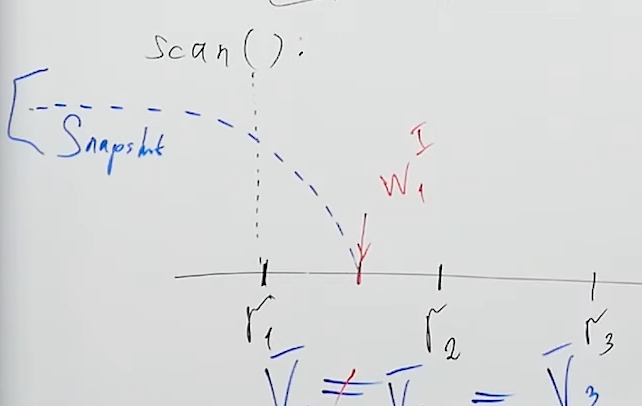 scan():
Snapshot
W₁ᴵ
r₁ r₂ r₃
V̄ ≠ V̄ = V̄₃